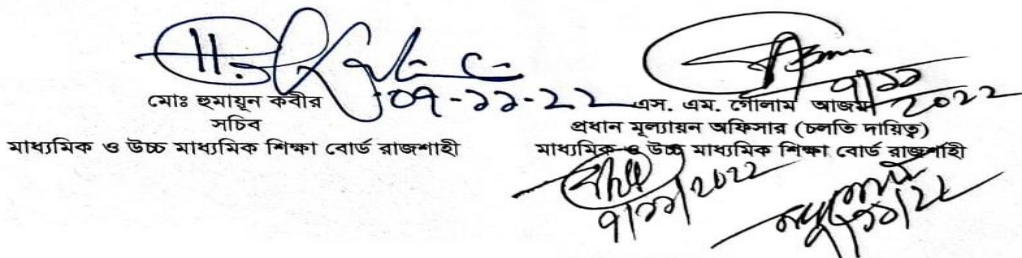 মোঃ হুমায়ূন কবীর
০৭-১১-২২
সচিব
মাধ্যমিক ও উচ্চ মাধ্যমিক শিক্ষা বোর্ড রাজশাহী
৭/১১
২০২২
এস. এম. গোলাম আজম
প্রধান মূল্যায়ন অফিসার (চলতি দায়িত্ব)
মাধ্যমিক ও উচ্চ মাধ্যমিক শিক্ষা বোর্ড রাজশাহী
৭/১১/২০২২